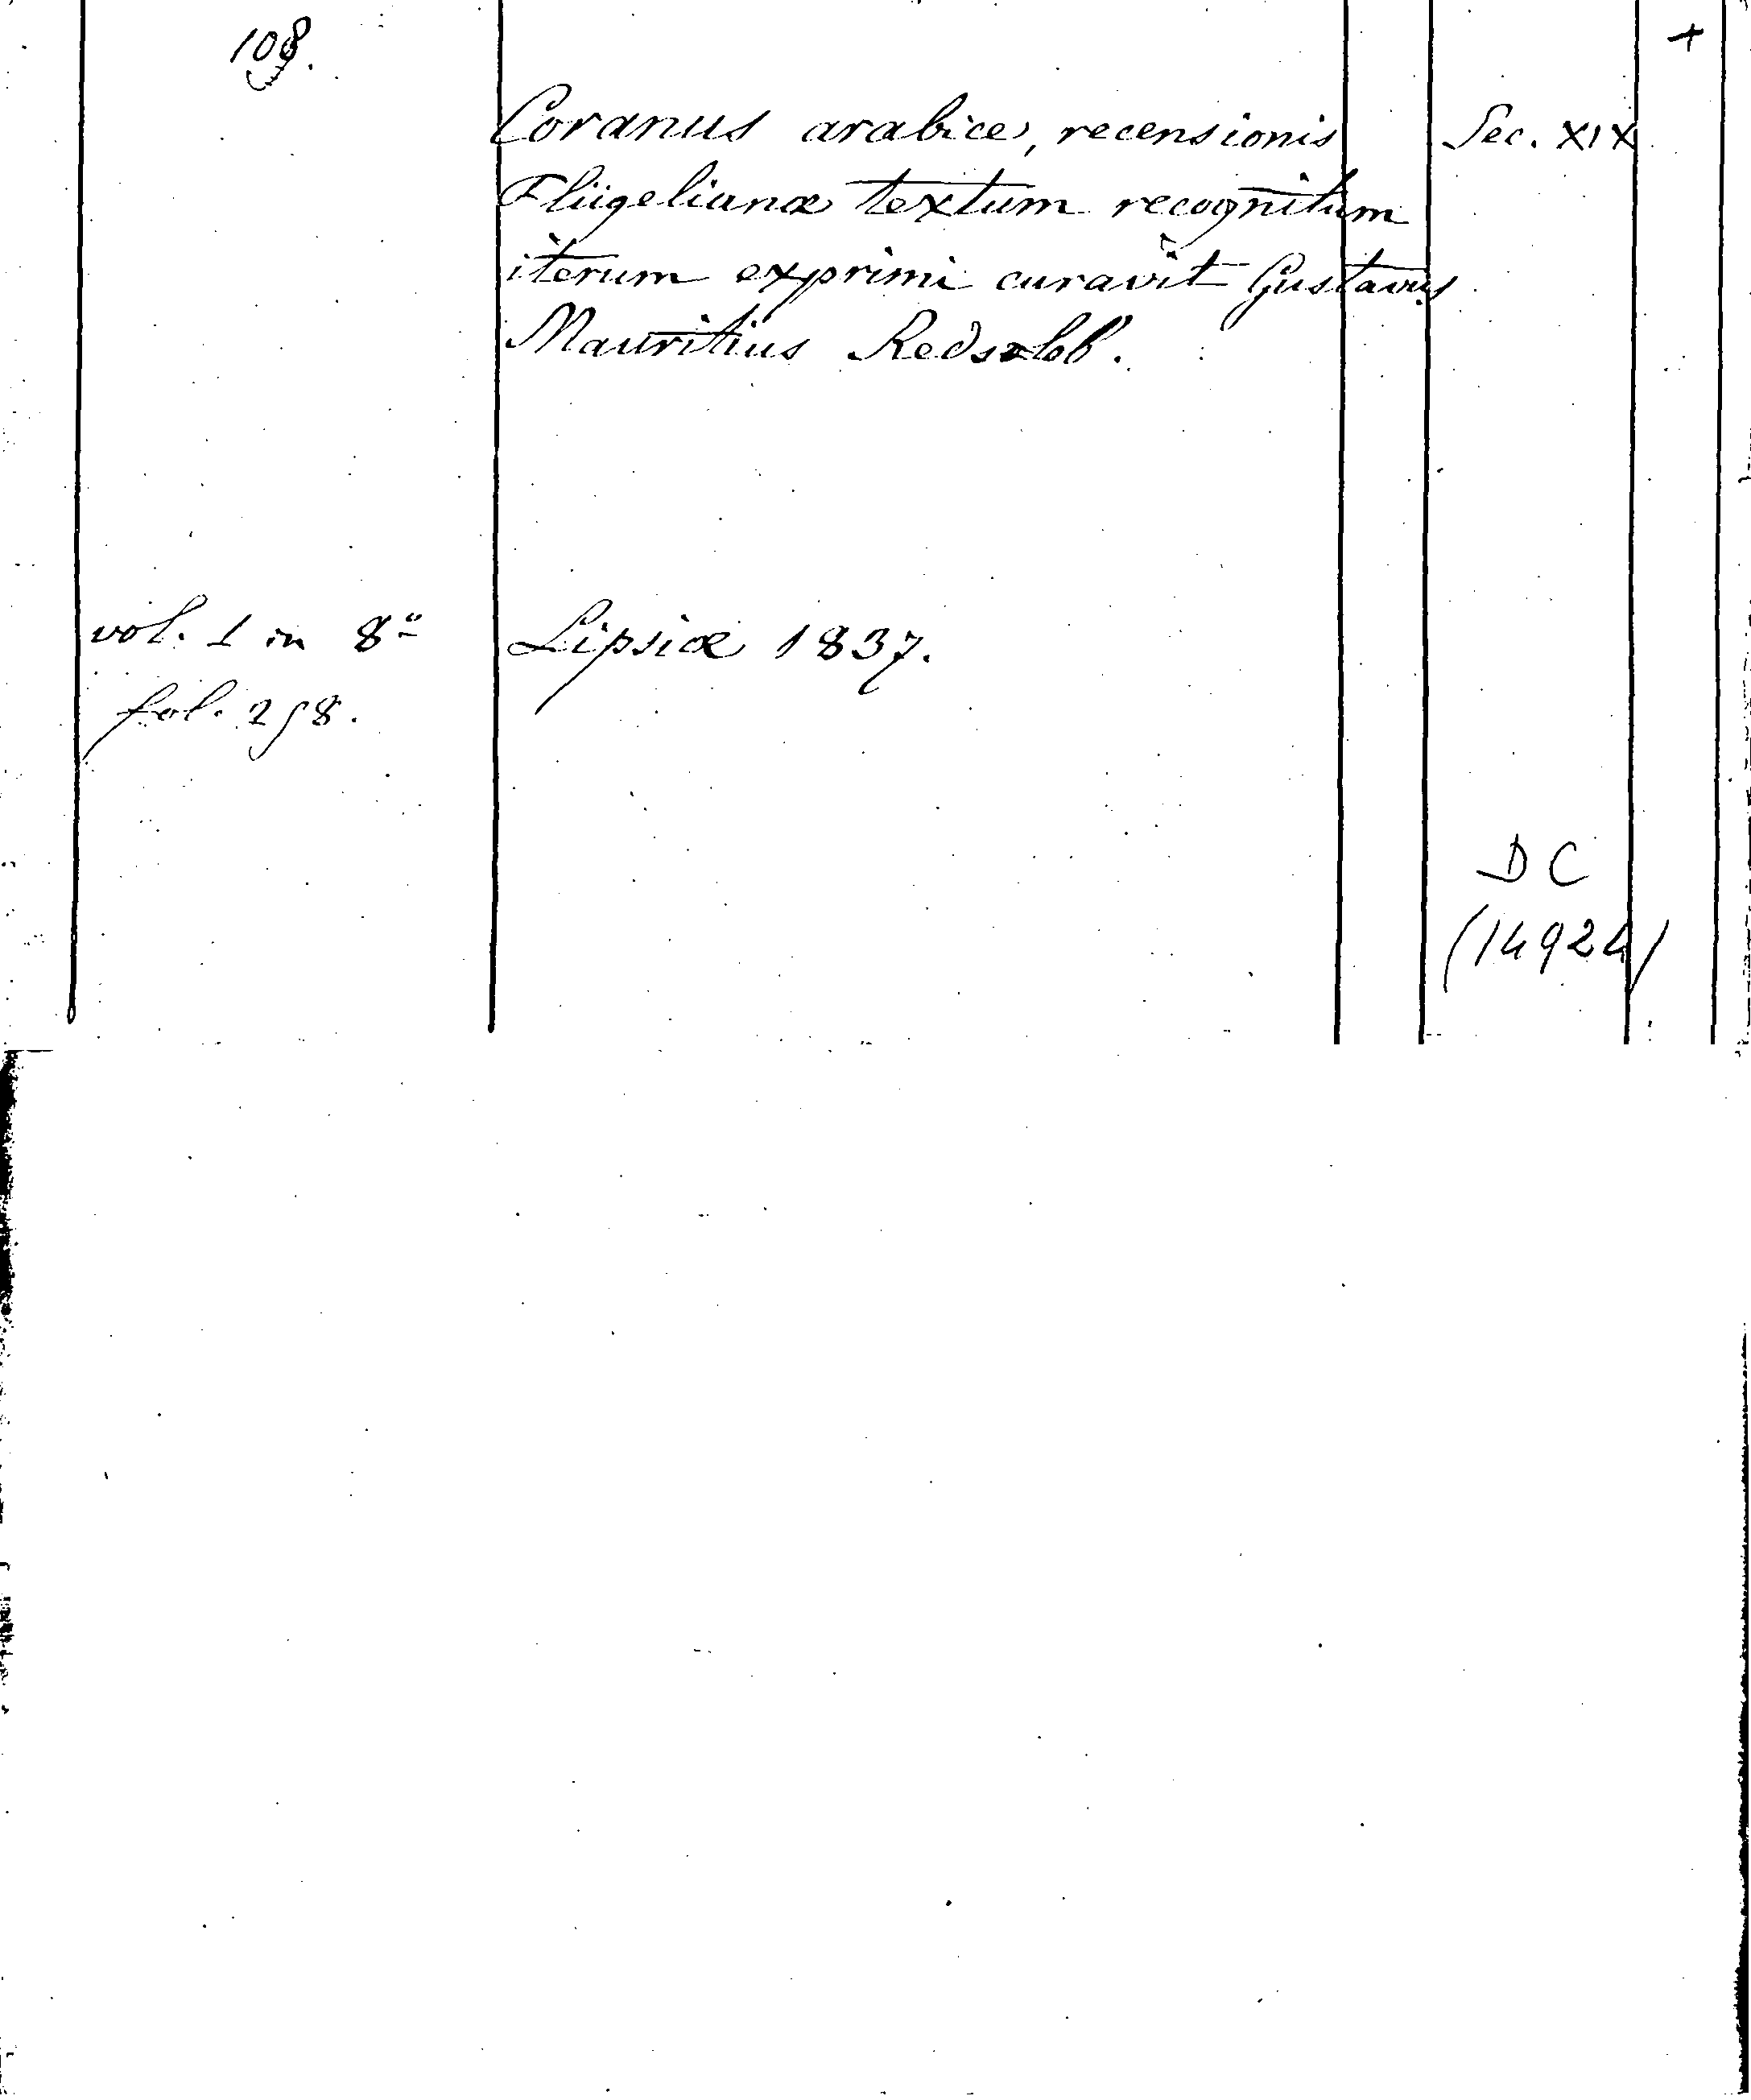 108.
+
Coranus arabice, recensionis
Sec. XIX
Flügelianæ textum recognitum
iterum exprimi curavit Gustavus
Mauritius Redslob.
vol. 1 in 8º
Lipsiæ 1837.
fol. 258.
D C
(14924)